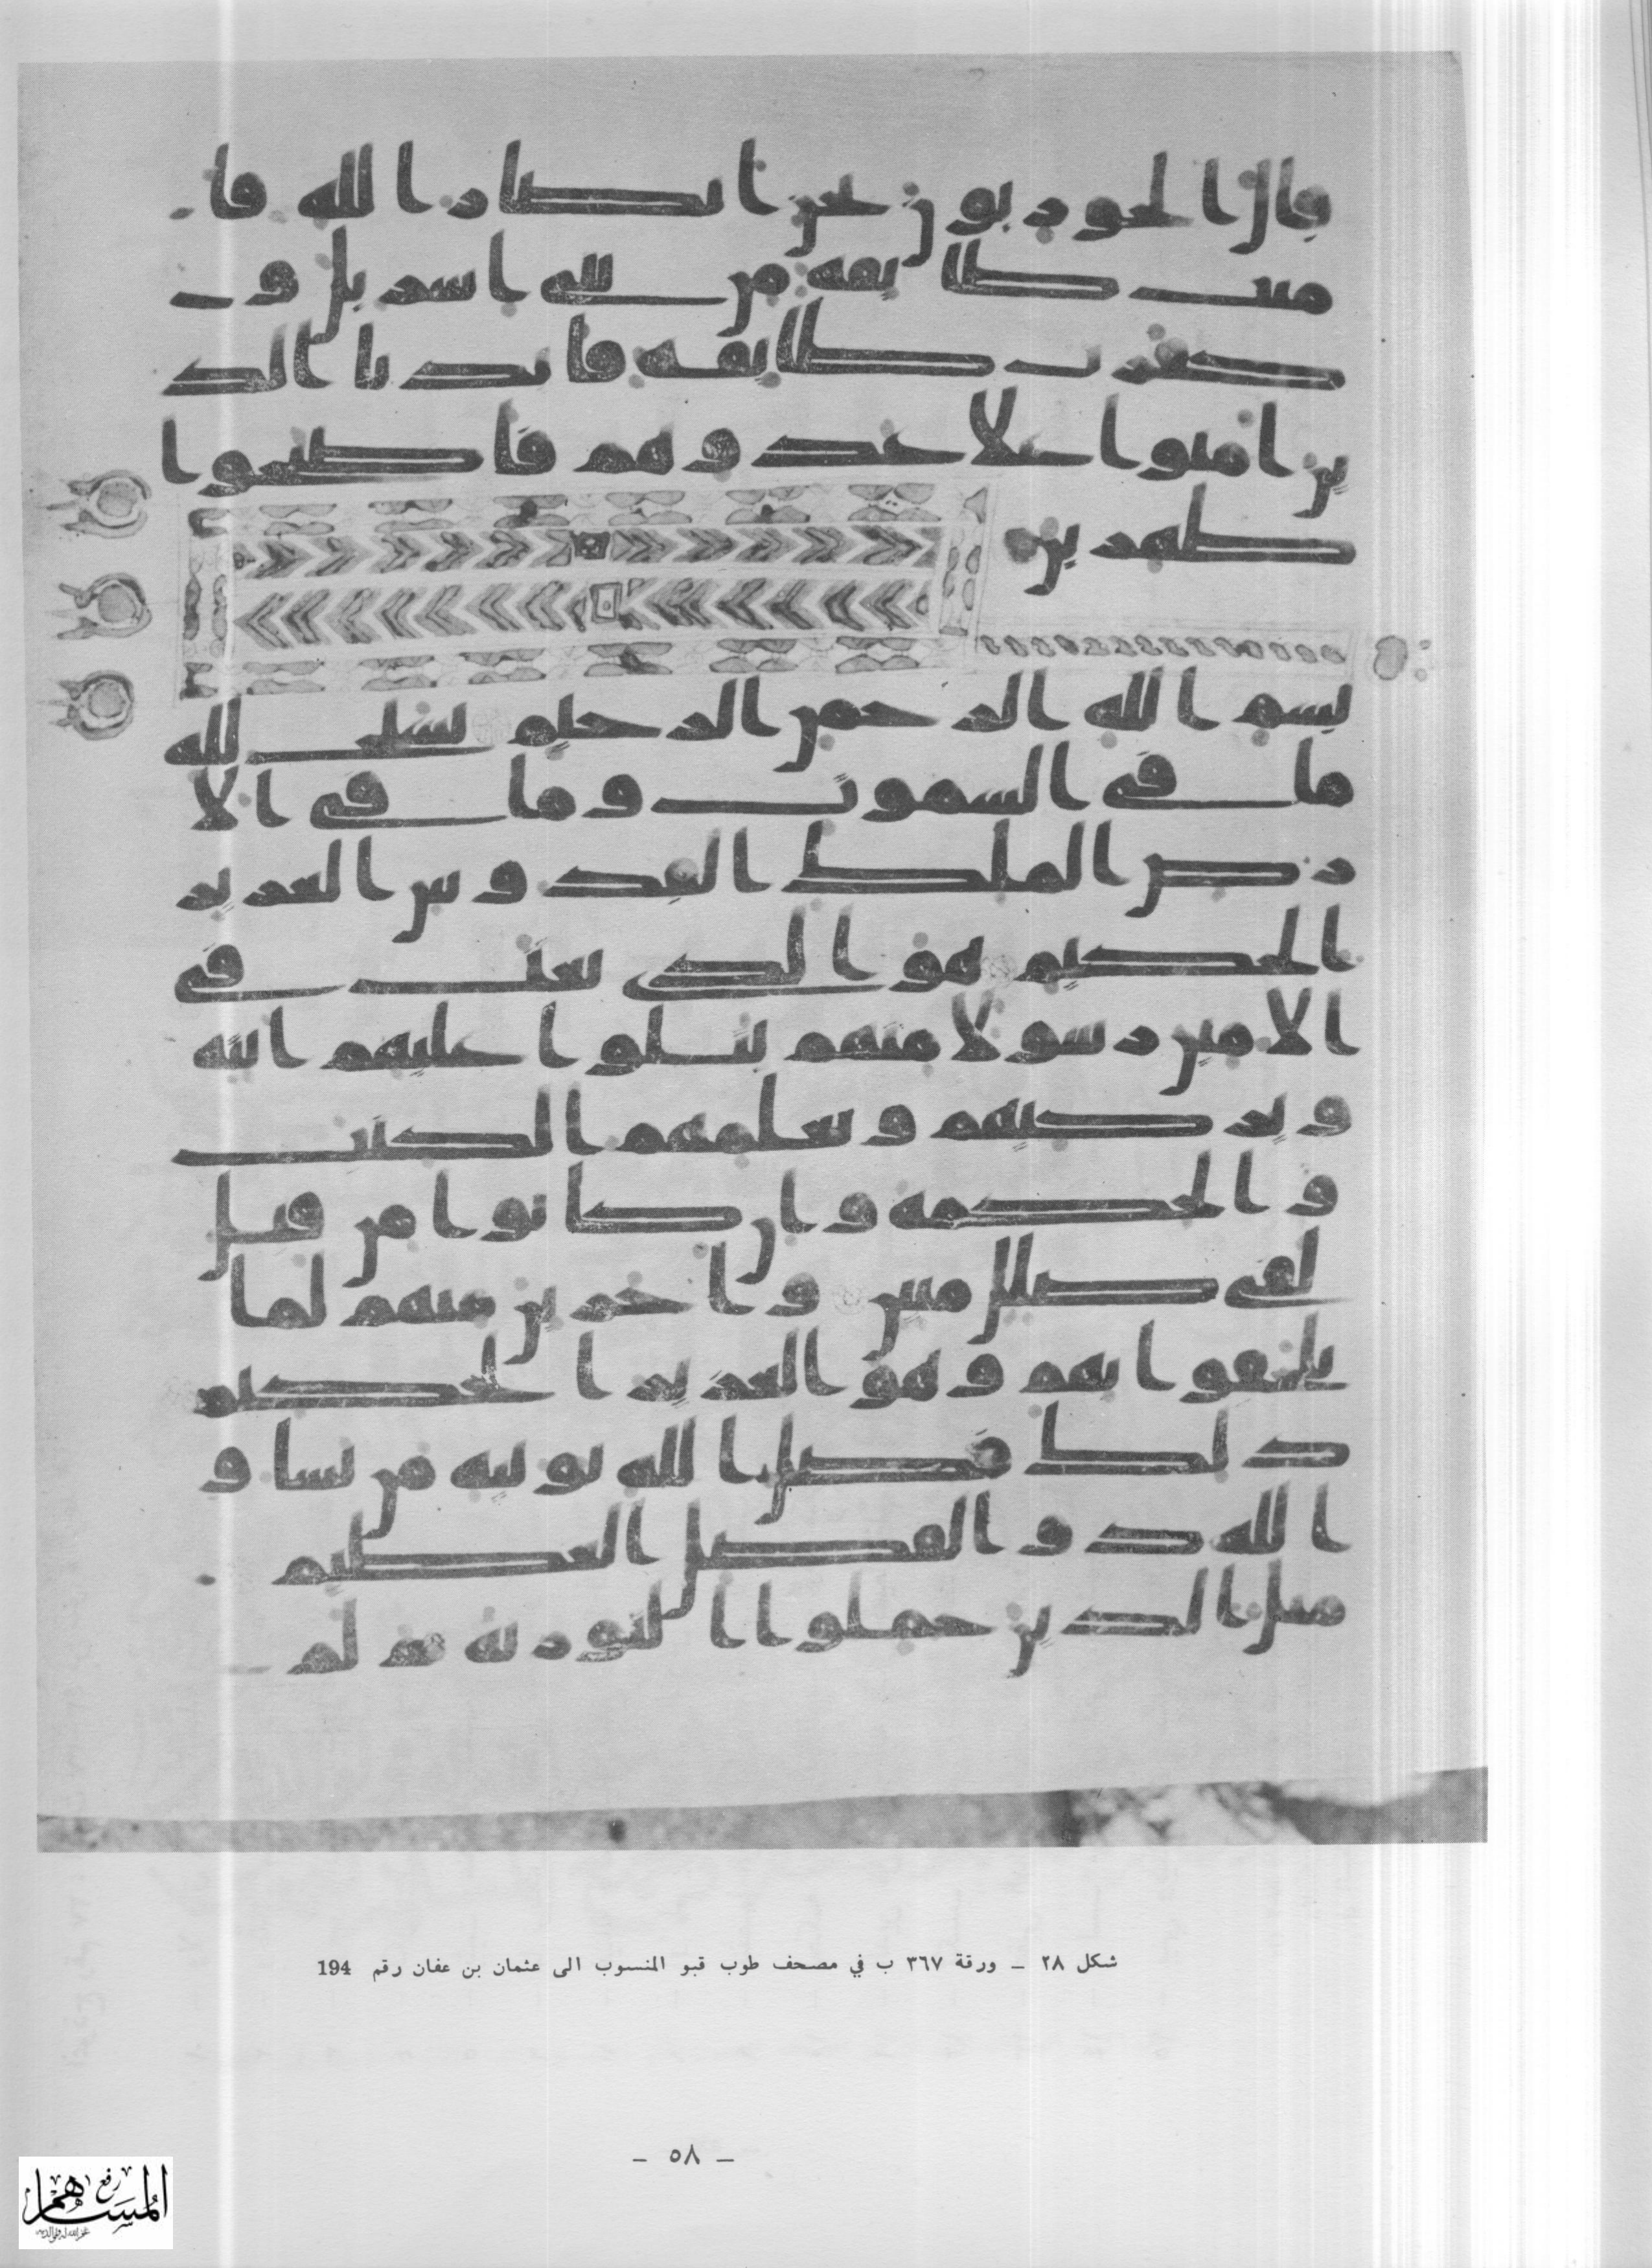 قال الحوريون نحن انصار الله فا
منت طايفة من بني اسريل و
كفرت طايفة فايدنا الذ
ين امنوا على عدوهم فاصبحوا
ظهرين
بسم الله الرحمن الرحيم يسبح لله
ما في السموت وما في الا
رض الملك القدوس العزيز
الحكيم هو الذي بعث في
الامين رسولا منهم يتلوا عليهم ايته
ويزكيهم ويعلمهم الكتب
والحكمة وان كانوا من قبل
لفي ضلل مبين واخرين منهم لما
يلحقوا بهم وهو العزيز الحكيم
ذلك فضل الله يوتيه من يشا و
الله ذو الفضل العظيم
مثل الذين حملوا التورية ثم لم
شكل ٢٨ – ورقة ٣٦٧ ب في مصحف طوب قبو المنسوب الى عثمان بن عفان رقم 194
– ٥٨ –
رفع
المساهم